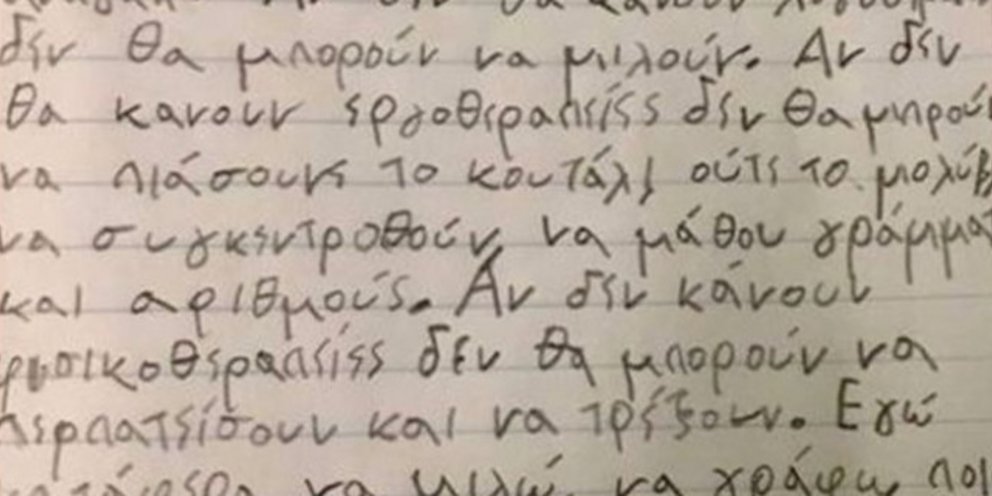 δεν θα μπορούν να μιλούν. Αν δεν
θα κανουν εργοθεραπείες δεν θα μπρούν
να πιάσουνε το κουτάλι ούτε το μολύβι
να συγκεντροθούν, να μάθου γράμματ
και αριθμούς. Αν δεν κάνουν
φυσικοθεραπείες δεν θα μπορούν να
περπατείσουν και να τρέξουν. Εγώ
να μιλώ, να γράφω